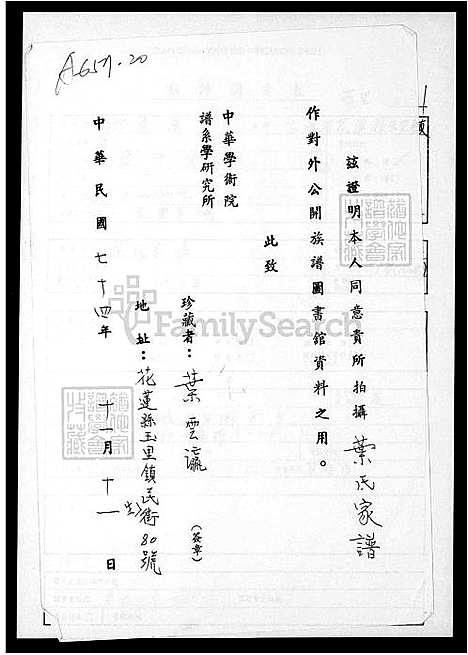 A657-20
茲證明本人同意貴所拍攝葉氏家譜
作對外公開族譜圖書館資料之用。
此致
中華學術院
譜系學研究所
珍藏者：葉雲瀛（簽章）
地址：花蓮縣玉里鎮民街80號
中華民國七十四年十一月十一日
FamilySearch